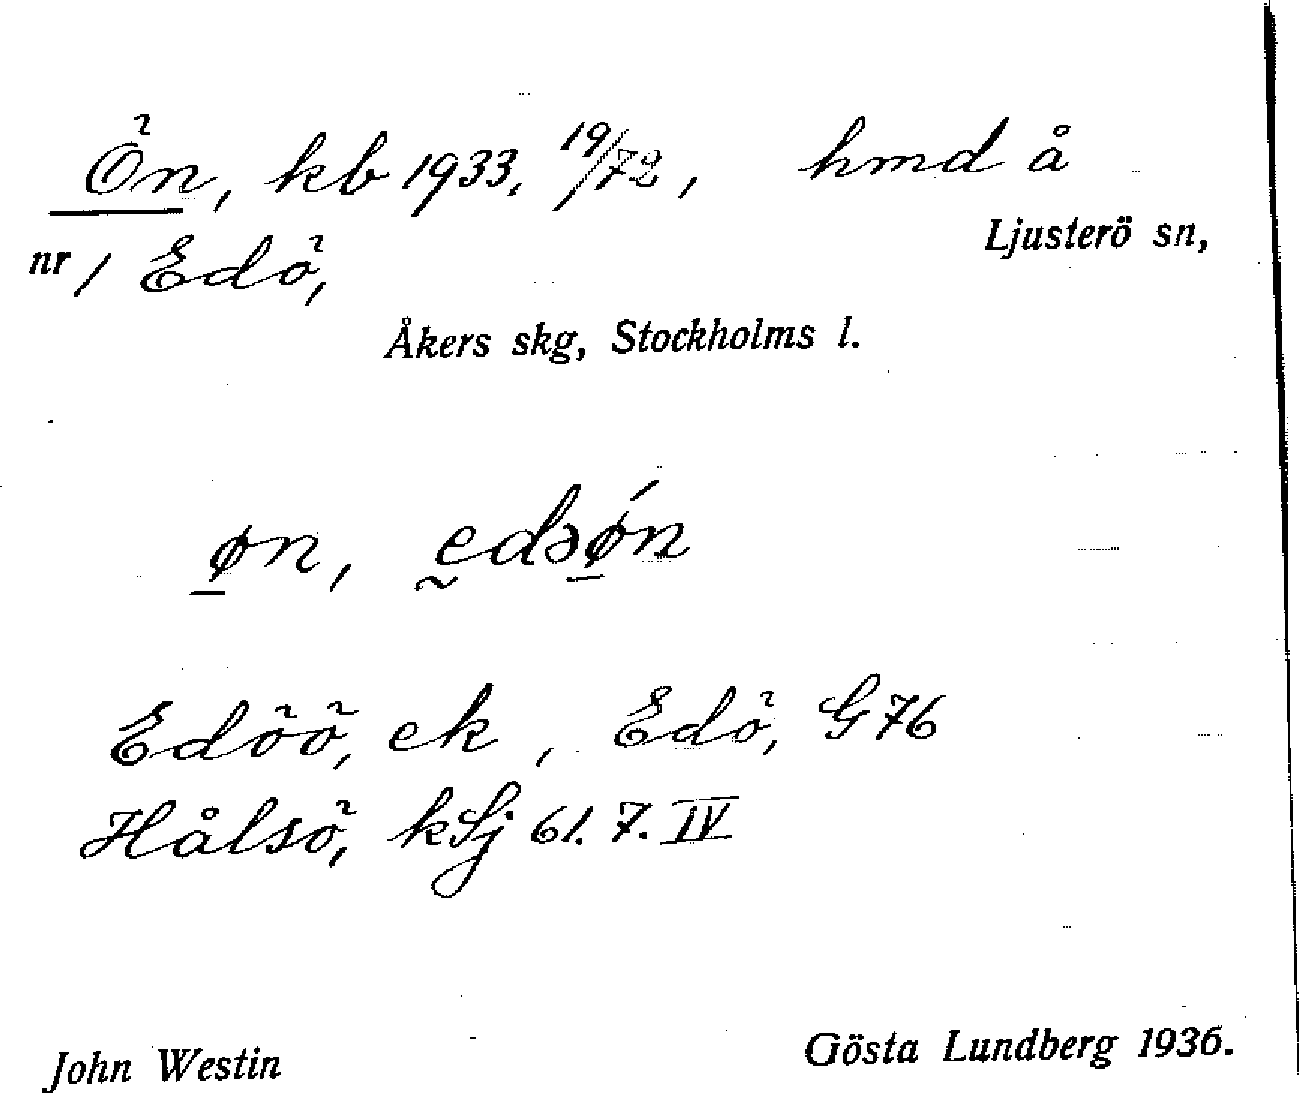 Ön, kb 1933, 19/72, hmd å
Ljusterö sn,
nr 1 Edö,
Åkers skg, Stockholms l.
øn, edəǿn
Edöö, ek, Edö, G76
Hålsö, kSj 61. 7. IV
John Westin
Gösta Lundberg 1936.